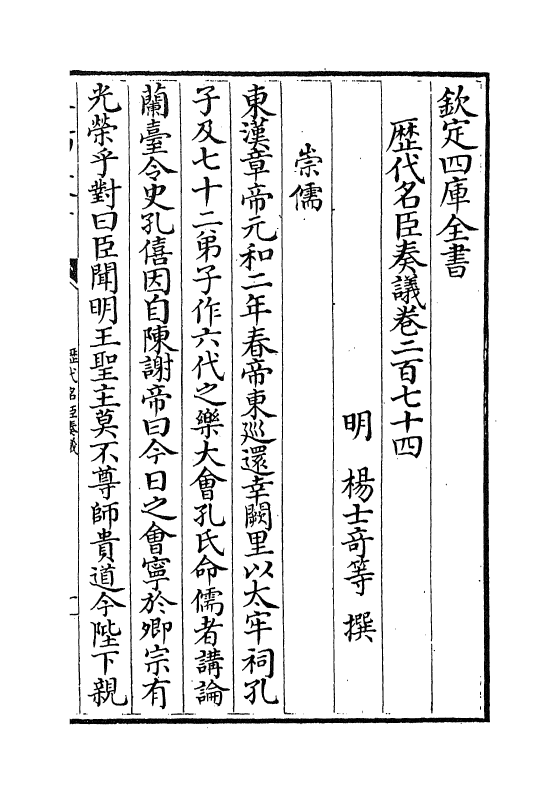 欽定四庫全書
歴代名臣奏議卷二百七十四
明　楊士奇等　撰
崇儒
東漢章帝元和二年春帝東廵還幸闕里以太牢祠孔
子及七十二弟子作六代之樂大會孔氏命儒者講論
蘭臺令史孔僖因自陳謝帝曰今日之會寧於卿宗有
光榮乎對曰臣聞明王聖主莫不尊師貴道今陛下親
歴代名臣奏議